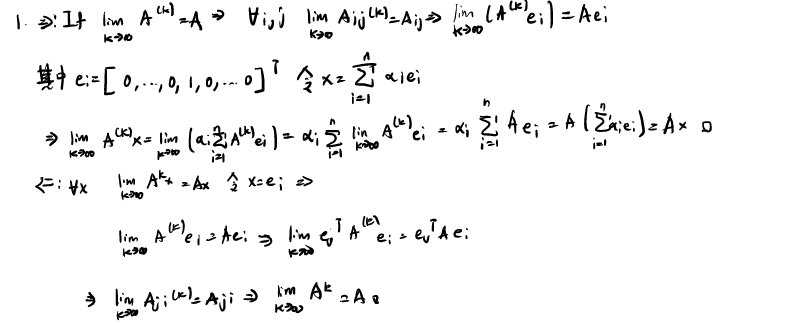 1. ⇒: If lim_{k→∞} A^{(k)} = A ⇒ ∀i,j lim_{k→∞} A_{ij}^{(k)} = A_{ij} ⇒ lim_{k→∞} (A^{(k)} e_i) = A e_i
其中 e_i = [0, ..., 0, 1, 0, ... 0]^T 令 x = ∑_{i=1}^{n} α_i e_i
⇒ lim_{k→∞} A^{(k)} x = lim_{k→∞} (α_i ∑_{i=1}^{n} A^{(k)} e_i) = α_i ∑_{i=1}^{n} lim_{k→∞} A^{(k)} e_i = α_i ∑_{i=1}^{n} A e_i = A (∑_{i=1}^{n} α_i e_i) = Ax □
<=: ∀x lim_{k→∞} A^k x = Ax 令 x = e_i ⇒
lim_{k→∞} A^{(k)} e_i = A e_i ⇒ lim_{k→∞} e_j^T A^{(k)} e_i = e_j^T A e_i
⇒ lim_{k→∞} A_{ji}^{(k)} = A_{ji} ⇒ lim_{k→∞} A^k = A □